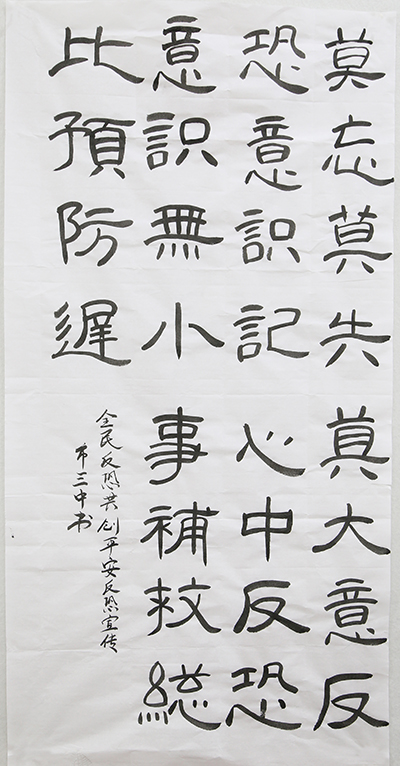 莫忘莫失莫大意反
恐意識記心中反恐
意識無小事補救総
比預防遲
全民反恐共创平安反恐宣传
市三中书